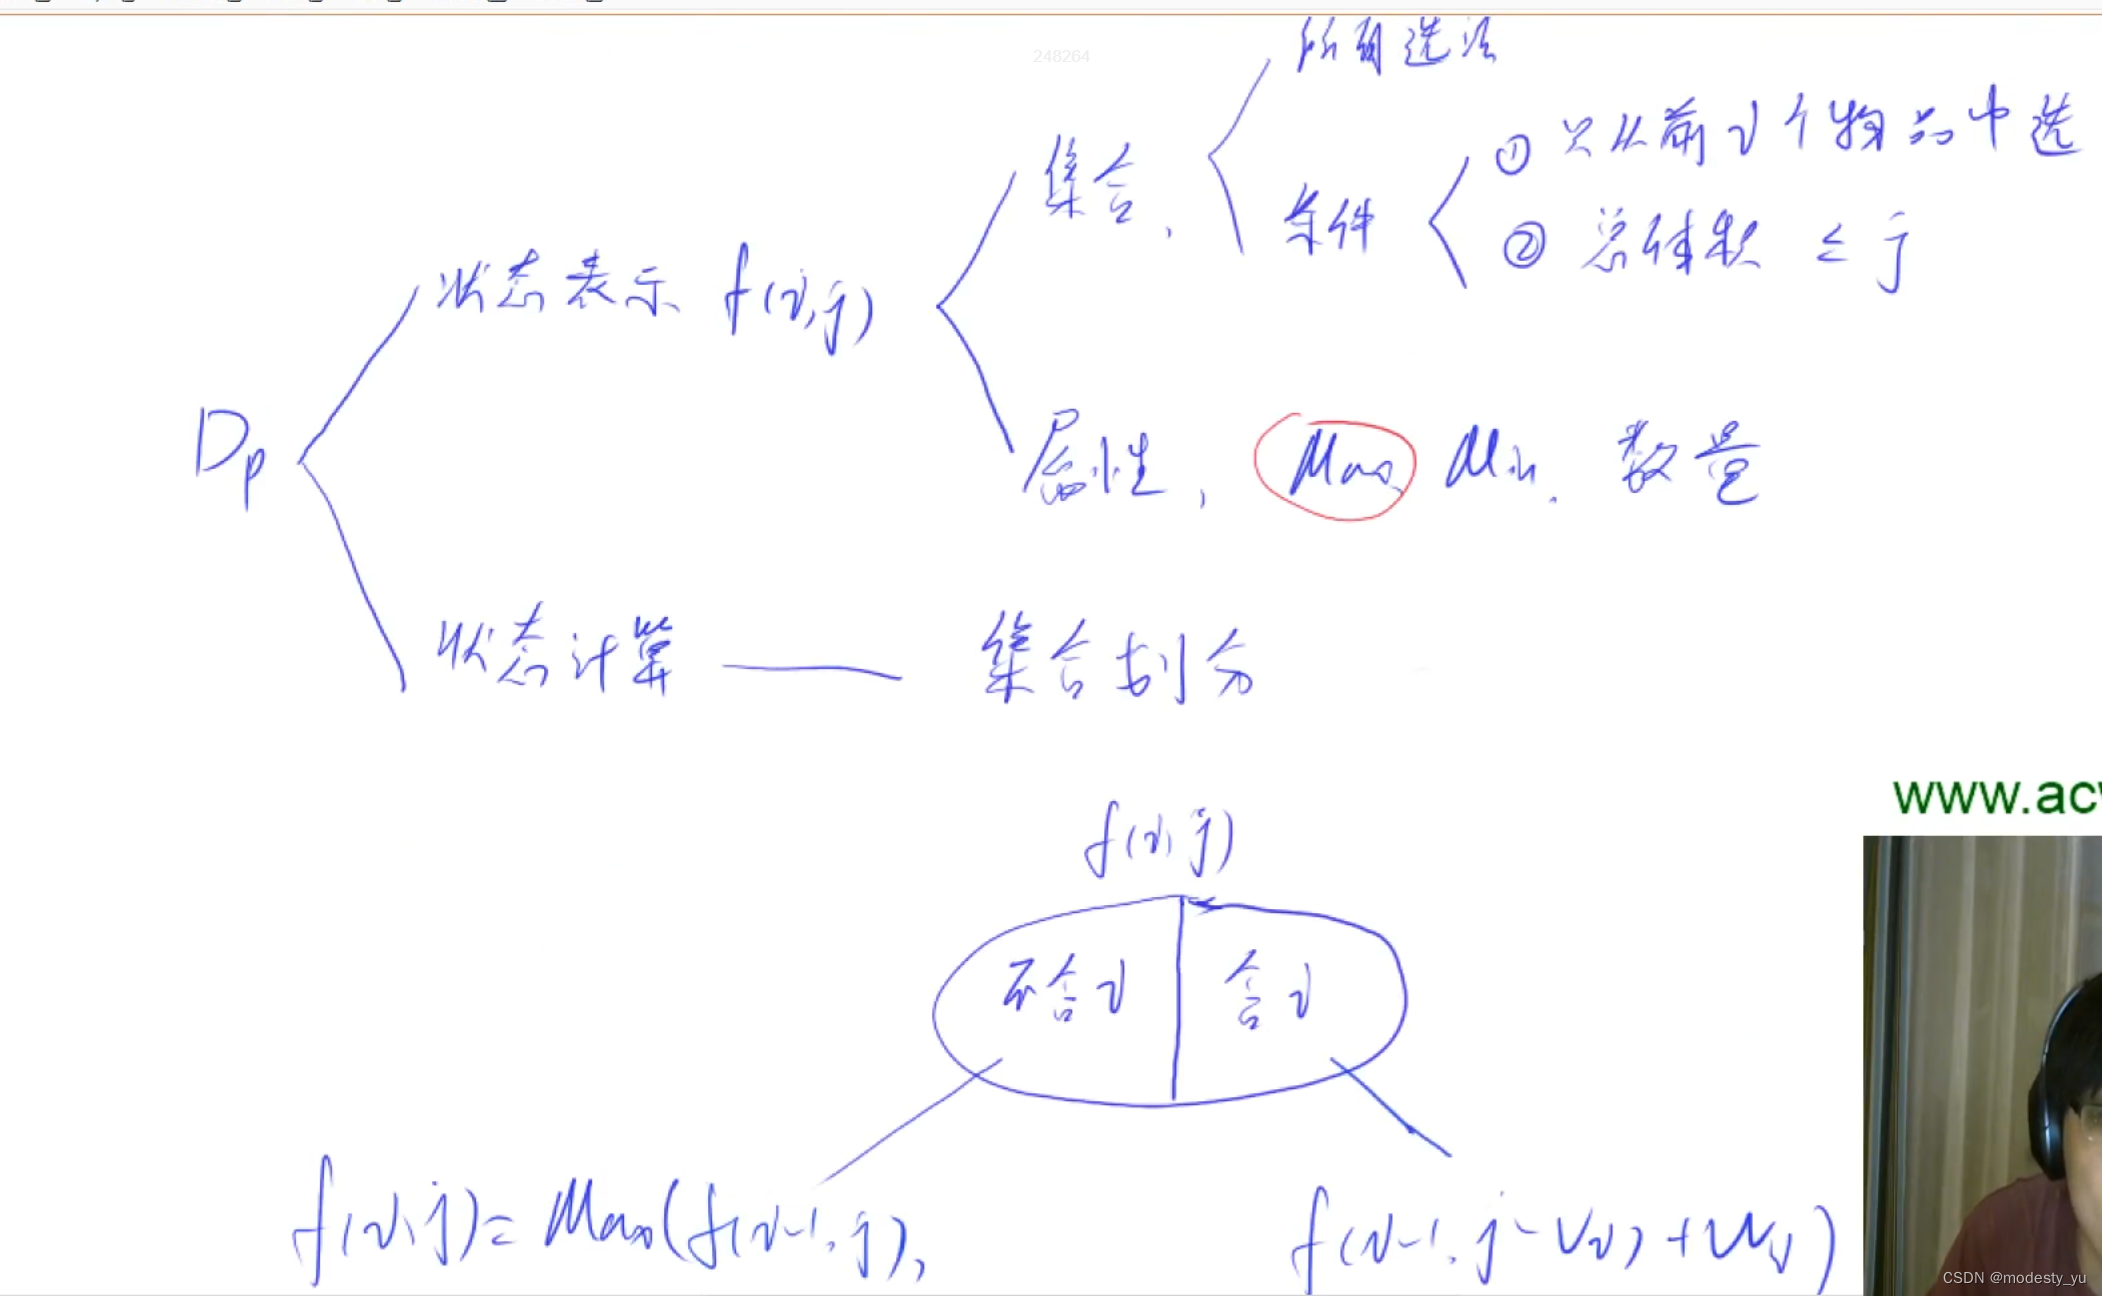 248264
所有选法
集合,
条件
① 只从前i个物品中选
② 总体积 ≤ j
状态表示 f(i,j)
Dp
属性, Max Min. 数量
状态计算 —— 集合划分
www.ac
f(i,j)
不含i 含i
f(i,j)= Max(f(i-1,j), f(i-1,j-Vi)+Wi)
CSDN @modesty_yu